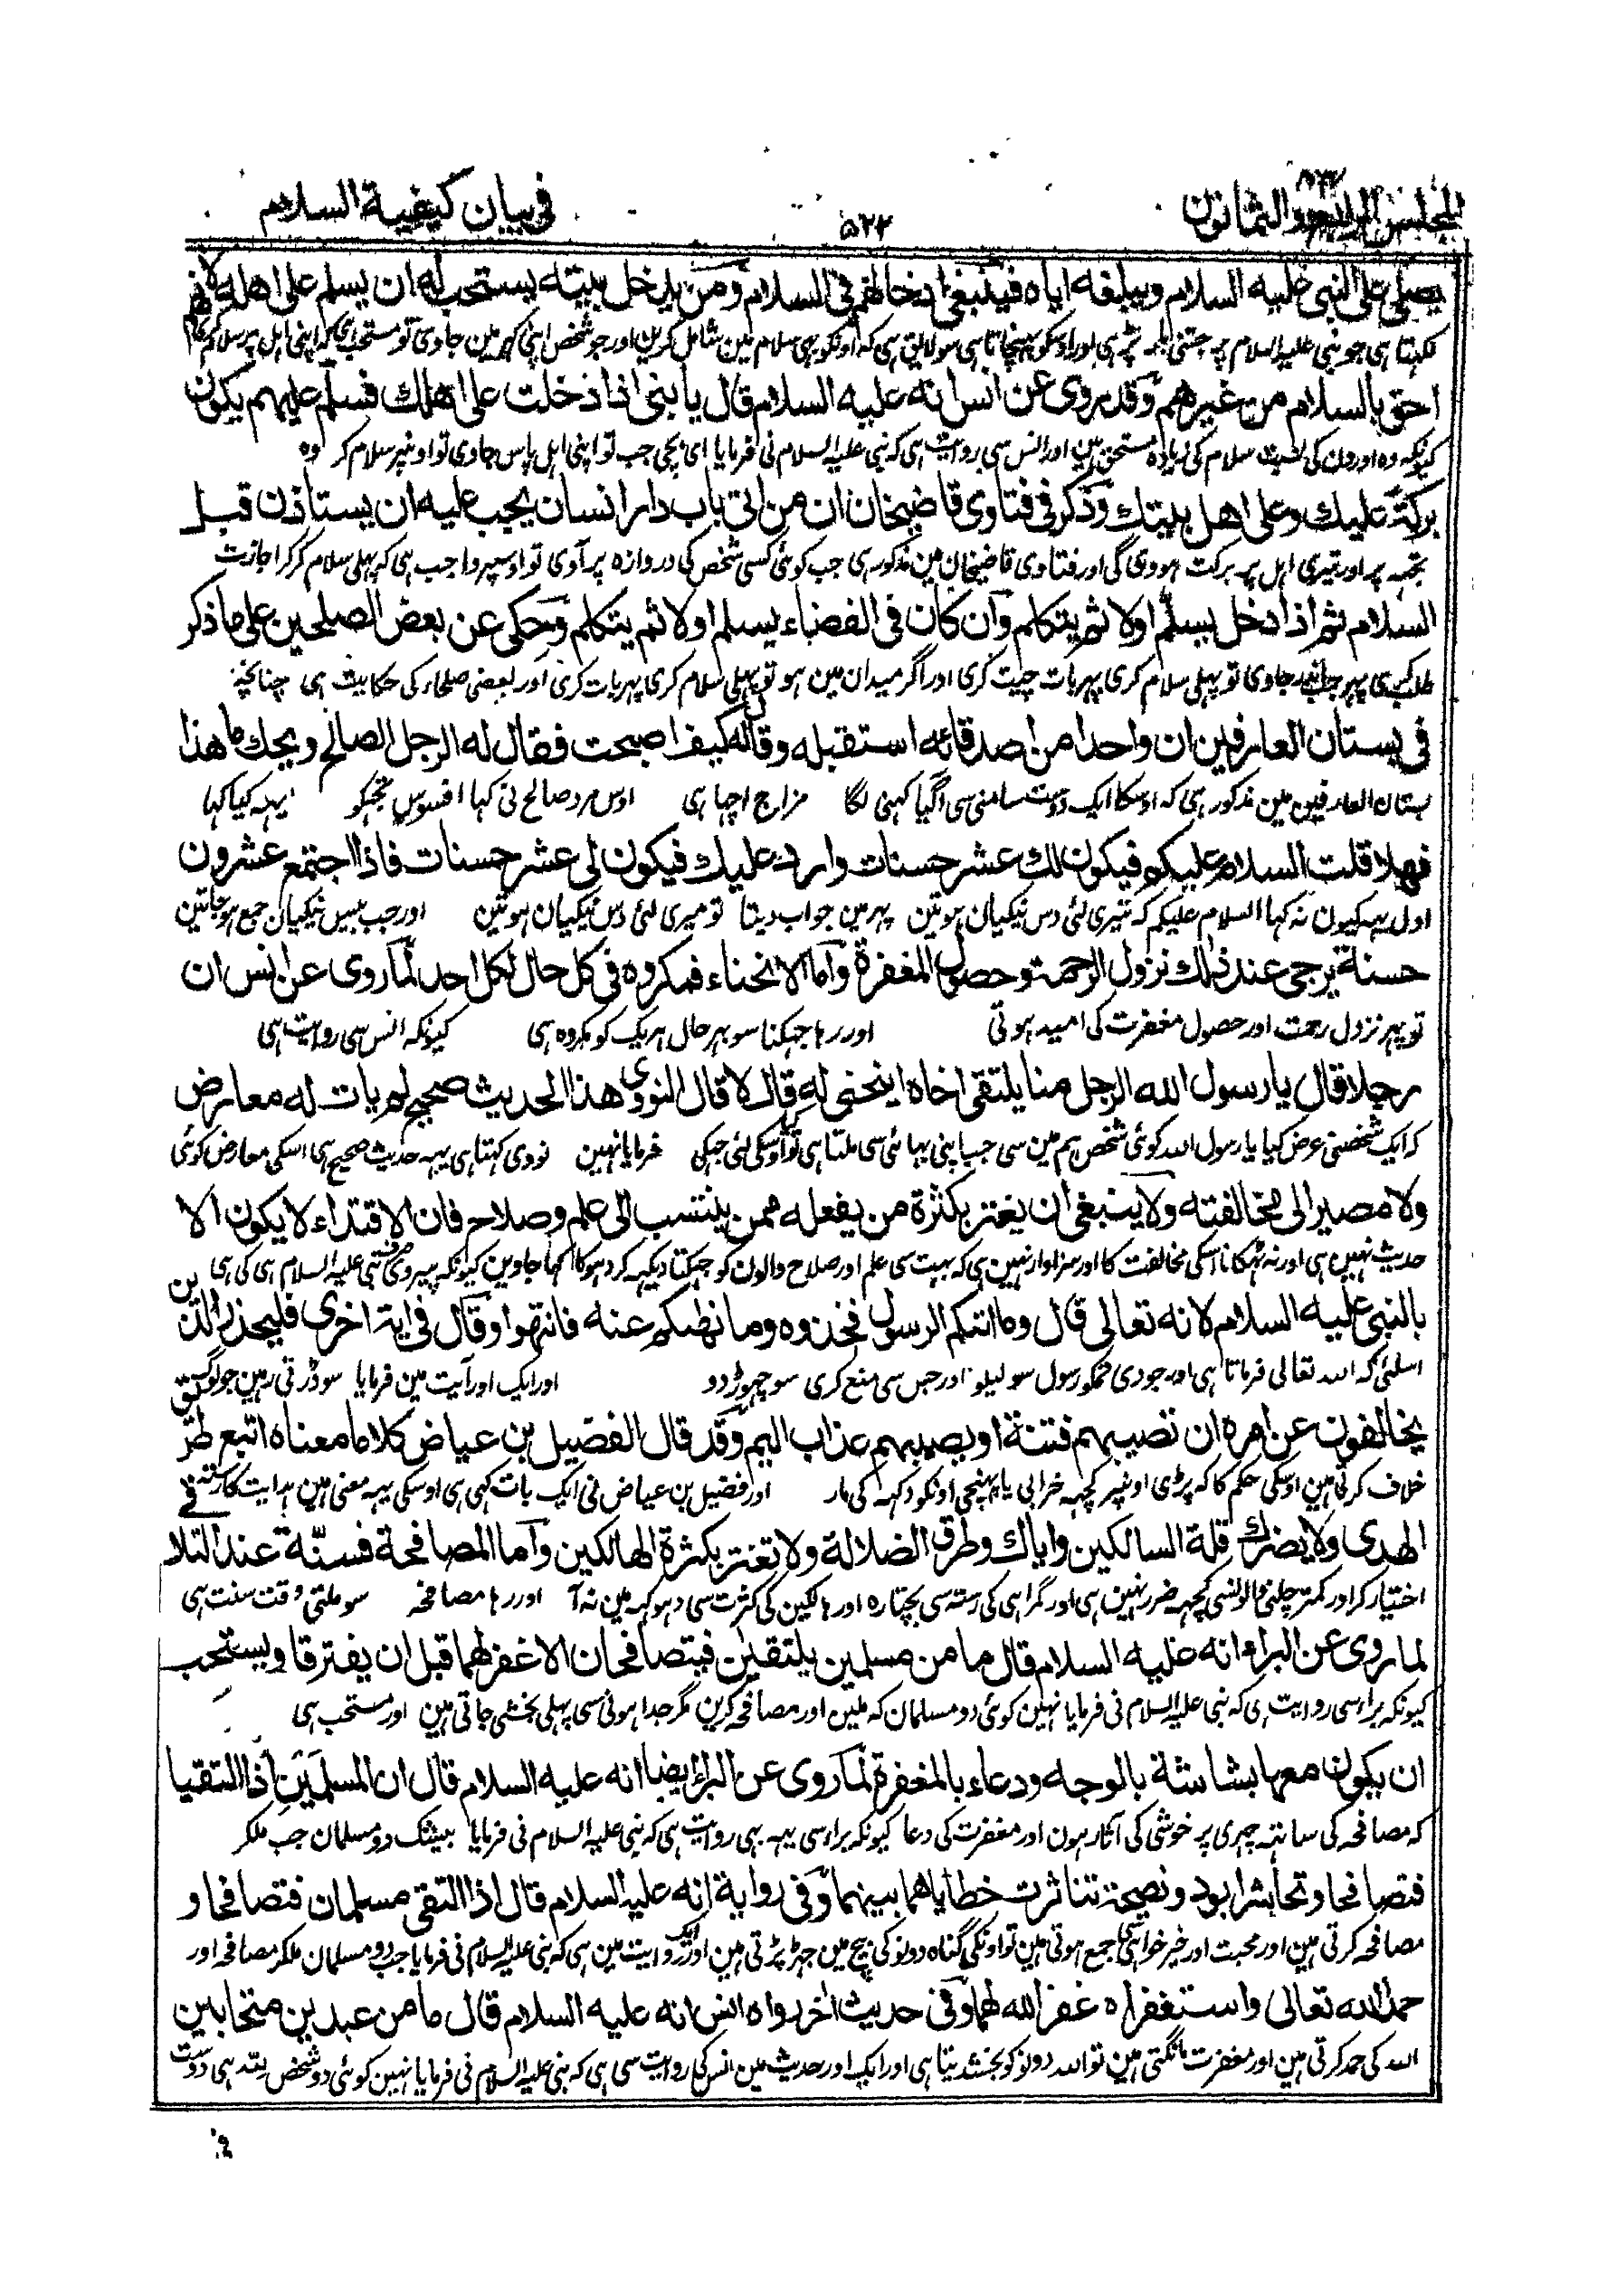 المجلس الرابع والثمانون ۵۲۲ في بيان كيفية السلام
يصلي على النبي عليه السلام ويبلغه اياه فينبغي ادخالهم في السلام ومن يدخل بيته يستحب له ان يسلم على اهله لانهم
لکہتا ہی جو نبی علیہ السلام پر جتنی پڑہی اور اوسکو پہنچاتا ہی سو لایق ہی کہ اونکو بہی سلام مین شامل کرین اور جو شخص اپنی گہر مین جاوی تو مستحب ہی کہ اپنی اہل پر سلام کری
احق بالسلام من غيرهم وقد روى عن انس انه عليه السلام قال يا بني اذا دخلت على اهلك فسلم عليهم يكون
کیونکہ وہ اورون کی نسبت سلام کی زیادہ مستحق ہین اور انس سی روایت ہی کہ نبی علیہ السلام نی فرمایا ای بچی جب تو اپنی اہل پاس جاوی تو اونپر سلام کر وہ
بركة عليك وعلى اهل بيتك وذكر في فتاوى قاضيخان ان من اتى باب دار انسان يجب عليه ان يستاذن قبل
تجہہ پر اور تیری اہل پر برکت ہووی گی اور فتاوی قاضیخان مین مذکور ہی جب کوئی کسی شخص کی دروازہ پر آوی تو اوسپر واجب ہی کہ پہلی سلام کر کر اجازت
السلام ثم اذا دخل يسلم اولا ثم يتكلم وان كان في الفضاء يسلم اولا ثم يتكلم وحكى عن بعض الصلحين على ما ذكر
طلب کری پہر جب اندر جاوی تو پہلی سلام کری پہر بات چیت کری اور اگر میدان مین ہو تو پہلی سلام کری پہر بات کری اور بعضی صلحاء کی حکایت ہی چنانچہ
في بستان العارفين ان واحدا من اصدقائه استقبله وقال له كيف اصبحت فقال له الرجل الصالح ويحك ما هذا
بستان العارفین مین مذکور ہی کہ اوسکا ایک دوست سامنی سی آگیا کہنی لگا مزاج اچہا ہی اوس مرد صالح نی کہا افسوس تجہکو یہہ کیا کہا
فهلا قلت السلام عليكم فيكون لك عشر حسنات وارد عليك فيكون لي عشر حسنات فاذا اجتمع عشرون
اول یہہ کیون نہ کہا السلام علیکم کہ تیری لئی دس نیکیان ہوتین پہر مین جواب دیتا تو میری لئی دس نیکیان ہوتین اور جب بیس نیکیان جمع ہو جاتین
حسنة يرجى عند ذلك نزول الرحمة وحصول المغفرة واما الانحناء فمكروه في كل حال لكل احد لما روى عن انس ان
تو پہر نزول رحمت اور حصول مغفرت کی امید ہوتی اور رہا جہکنا سو بہر حال ہر یک کو مکروہ ہی کیونکہ انس سی روایت ہی
رجلا قال يا رسول الله الرجل منا يلتقي اخاه اينحني له قال لا قال النووي هذا الحديث صحيح لم يات له معارض
کہ ایک شخصنی عرض کیا یا رسول اللہ کوئی شخص ہم مین سی جب اپنی بہائی سی ملتا ہی تو کیا اوسکی لئی جہکی فرمایا نہین نووی کہتا ہی یہہ حدیث صحیح ہی اسکی معارض کوئی
ولا مصير الى مخالفته ولا ينبغي ان يغتر بكثرة من يفعله ممن ينتسب الى علم وصلاح فان الاقتداء لا يكون الا
حدیث نہین ہی اور نہ ٹہکانا اسکی مخالفت کا اور سزاوار نہین ہی کہ بہت سی علم اور صلاح والون کو جہکتا دیکہہ کر دہوکا کہا جاوین کیونکہ پیروی صرف نبی علیہ السلام ہی کی ہی
بالنبي عليه السلام لانه تعالى قال وما اتىكم الرسول فخذوه وما نهىكم عنه فانتهوا وقال في اية اخرى فليحذر الذين
اسلئی کہ اللہ تعالی فرماتا ہی اور جو دی تمکو رسول سو لیلو اور جس سی منع کری سو چہوڑ دو اور ایک اور آیت مین فرمایا سو ڈرتی رہین جو لوگ
يخالفون عن امره ان تصيبهم فتنة او يصيبهم عذاب اليم وقد قال الفضيل بن عياض كلاما معناه اتبع طريق
خلاف کرتی ہین اوسکی حکم کا کہ پڑی اونپر کچہہ خرابی یا پہنچی اونکو دکہہ کی مار اور فضیل بن عیاض نی ایک بات کہی ہی اوسکی یہہ معنی ہین ہدایت کا رستہ
الهدى ولا يضرك قلة السالكين واياك وطرق الضلالة ولا تغتر بكثرة الهالكين واما المصافحة فسنة عند التلاقي
اختیار کر اور کمتر چلنی والونسی کچہہ ضرر نہین ہی اور گمراہی کی رستہ سی بچتا رہ اور ہالکین کی کثرت سی دہوکہ مین نہ آ اور رہا مصافحہ سو ملتی وقت سنت ہی
لما روى عن البراء انه عليه السلام قال ما من مسلمين يلتقيان فيتصافحان الا غفر لهما قبل ان يفترقا ويستحب
کیونکہ براء سی روایت ہی کہ نبی علیہ السلام نی فرمایا نہین کوئی دو مسلمان کہ ملین اور مصافحہ کرین مگر جدا ہونی سی پہلی بخشی جاتی ہین اور مستحب ہی
ان يكون معها بشاشة بالوجه ودعاء بالمغفرة لما روى عن البراء ايضا انه عليه السلام قال ان المسلمين اذا التقيا
کہ مصافحہ کی ساتہہ چہری پر خوشی کی آثار ہون اور مغفرت کی دعا کیونکہ براء سی یہہ بہی روایت ہی کہ نبی علیہ السلام نی فرمایا بیشک دو مسلمان جب ملکر
فتصافحا وتحاشرا بود ونصيحة تناثرت خطاياهما بينهما وفي رواية انه عليه السلام قال اذا التقى مسلمان فتصافحا و
مصافحہ کرتی ہین اور محبت اور خیر خواہی سی جمع ہوتی ہین تو اونکی گناہ دونو کی بیچ مین جہڑ پڑتی ہین اور ایک روایت مین ہی کہ نبی علیہ السلام نی فرمایا جب دو مسلمان ملکر مصافحہ اور
حمدا لله تعالى واستغفراه غفر الله لهما وفي حديث اخر رواه انس انه عليه السلام قال ما من عبدين متحابين
اللہ کی حمد کرتی ہین اور مغفرت مانگتی ہین تو اللہ دونو کو بخشدیتا ہی اور ایک اور حدیث مین انس کی روایت سی ہی کہ نبی علیہ السلام نی فرمایا نہین کوئی دو شخص للہ ہی دوست